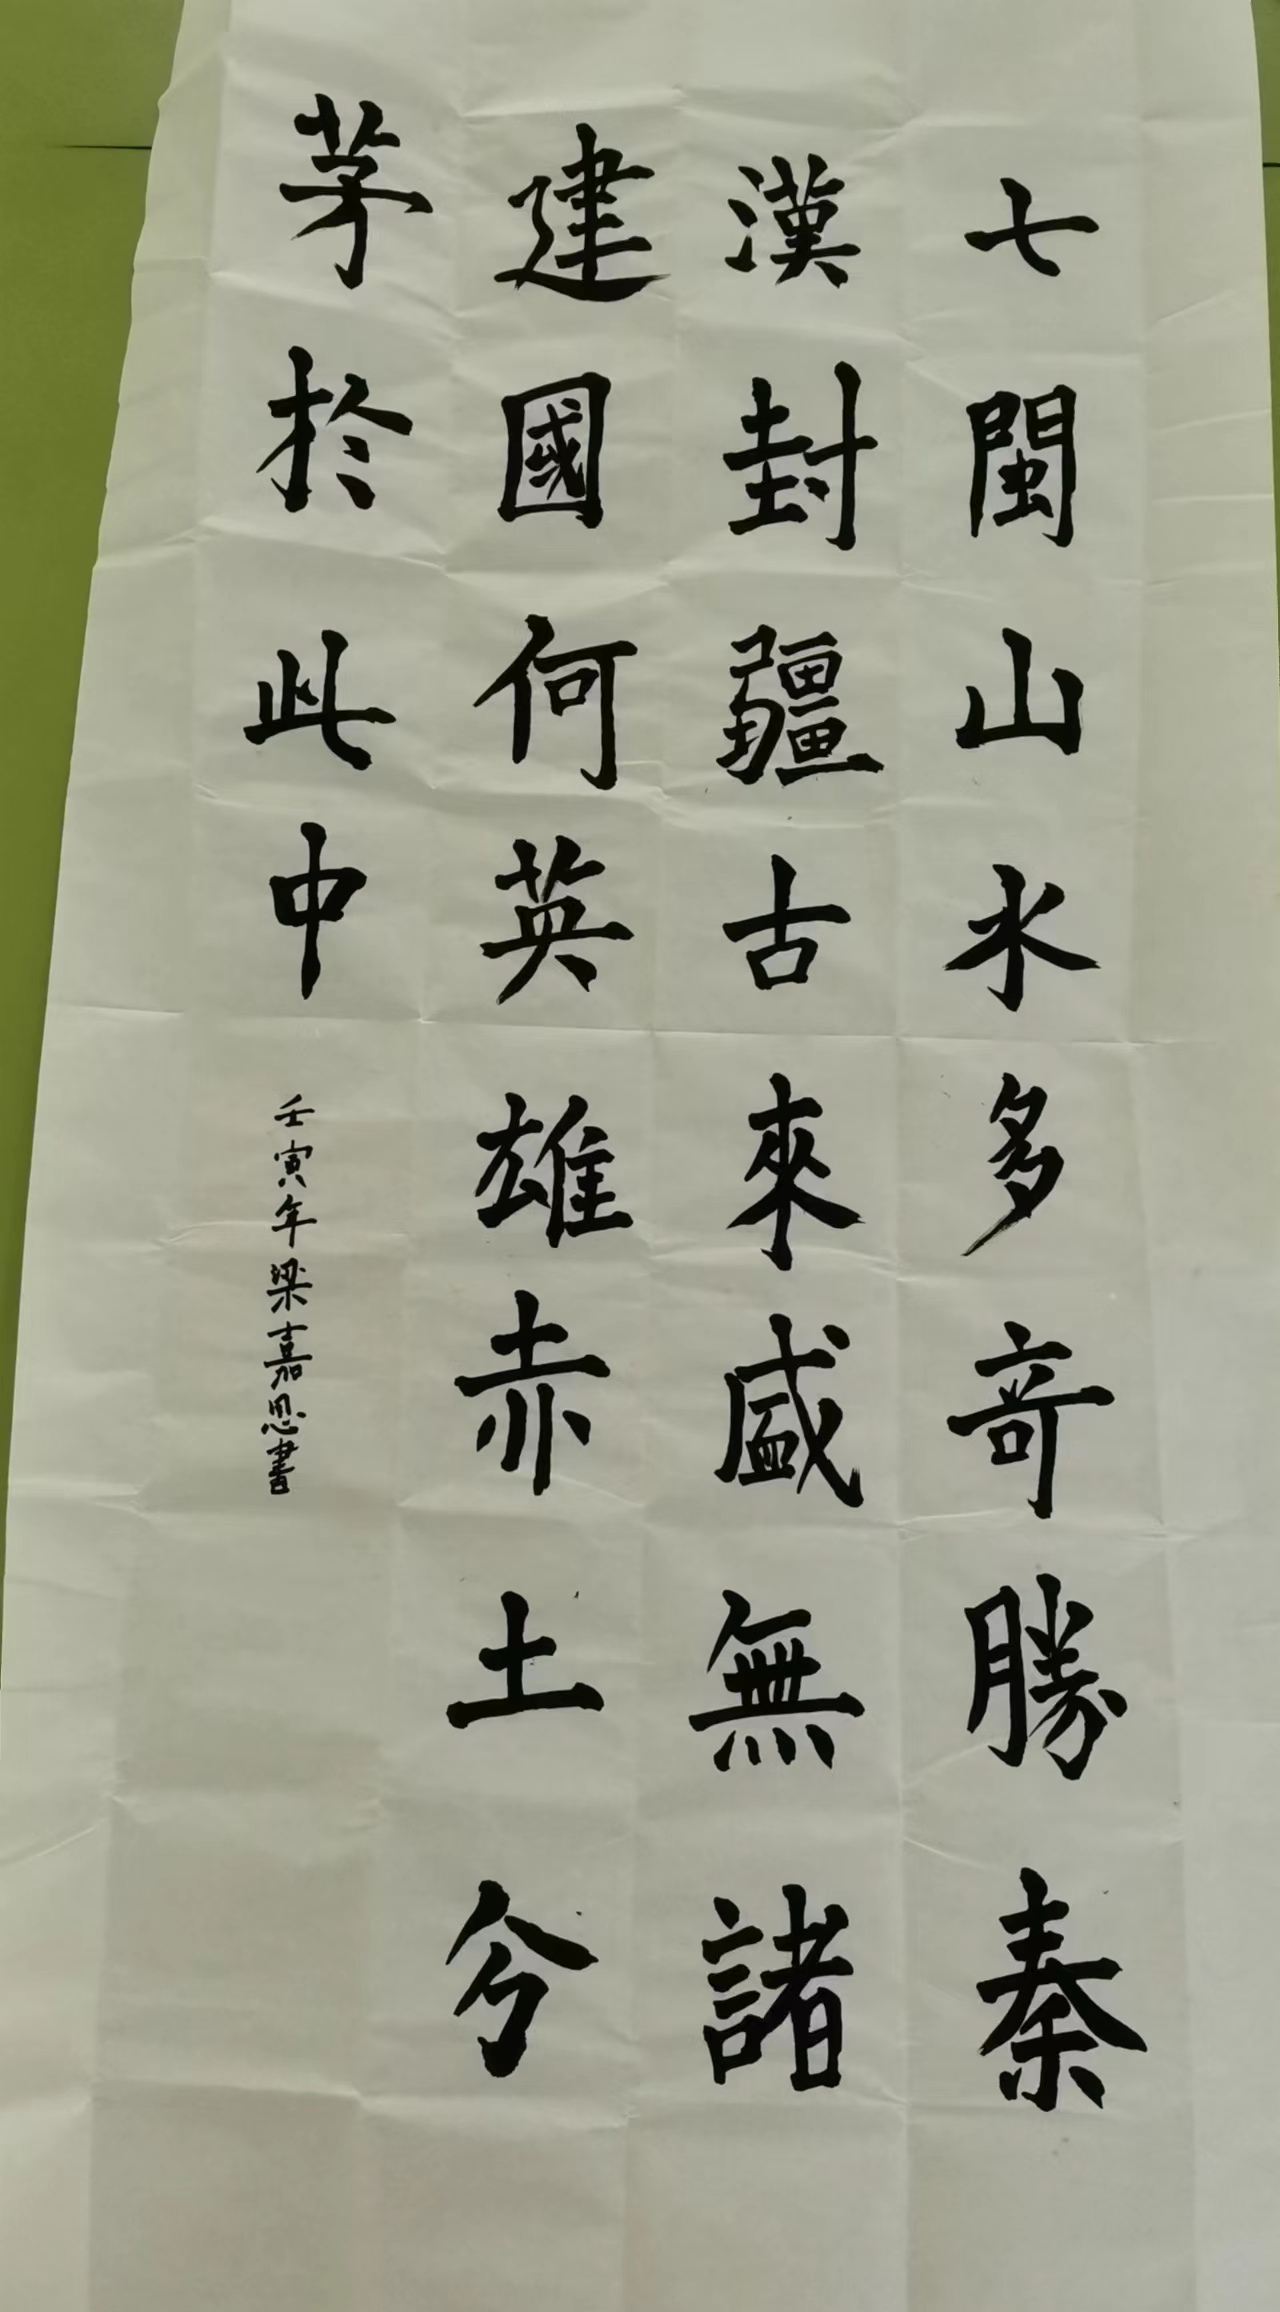 七閩山水多奇勝秦
漢封疆古來盛無諸
建國何英雄赤土分
茅於此中
壬寅年梁嘉恩書